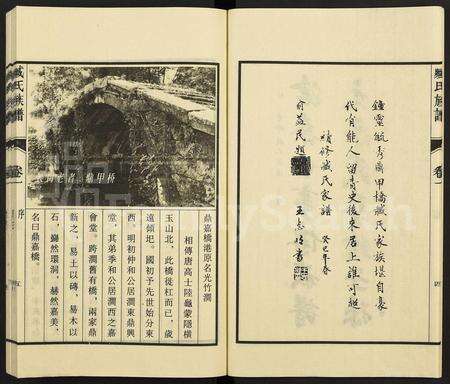 鐘靈毓秀鼎甲橋臧氏家族堪自豪
代有能人留青史後來居上誰可超
續修臧氏家譜 癸巳年春
俞益民題 王志明書
臧氏族譜
卷一
臧氏族譜
卷一
序
鼎甲橋
鼎嘉橋港原名光竹澗
相傳唐高士陸龜蒙隱橫
玉山北,此橋徙杠而已,歲
遠傾圯。國初予先世始分東
西。明初仲和公居澗東鼎興
堂,其弟季和公居澗西之嘉
會堂。跨澗舊有橋,兩家鼎
新之,易土以磚,易木以
石,巋然環洞,赫然嘉美,
名曰鼎嘉橋。
FamilySearch